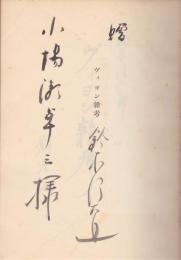 贈
ヴィヨン雑考
鈴木信太郎
小場瀬卓三様